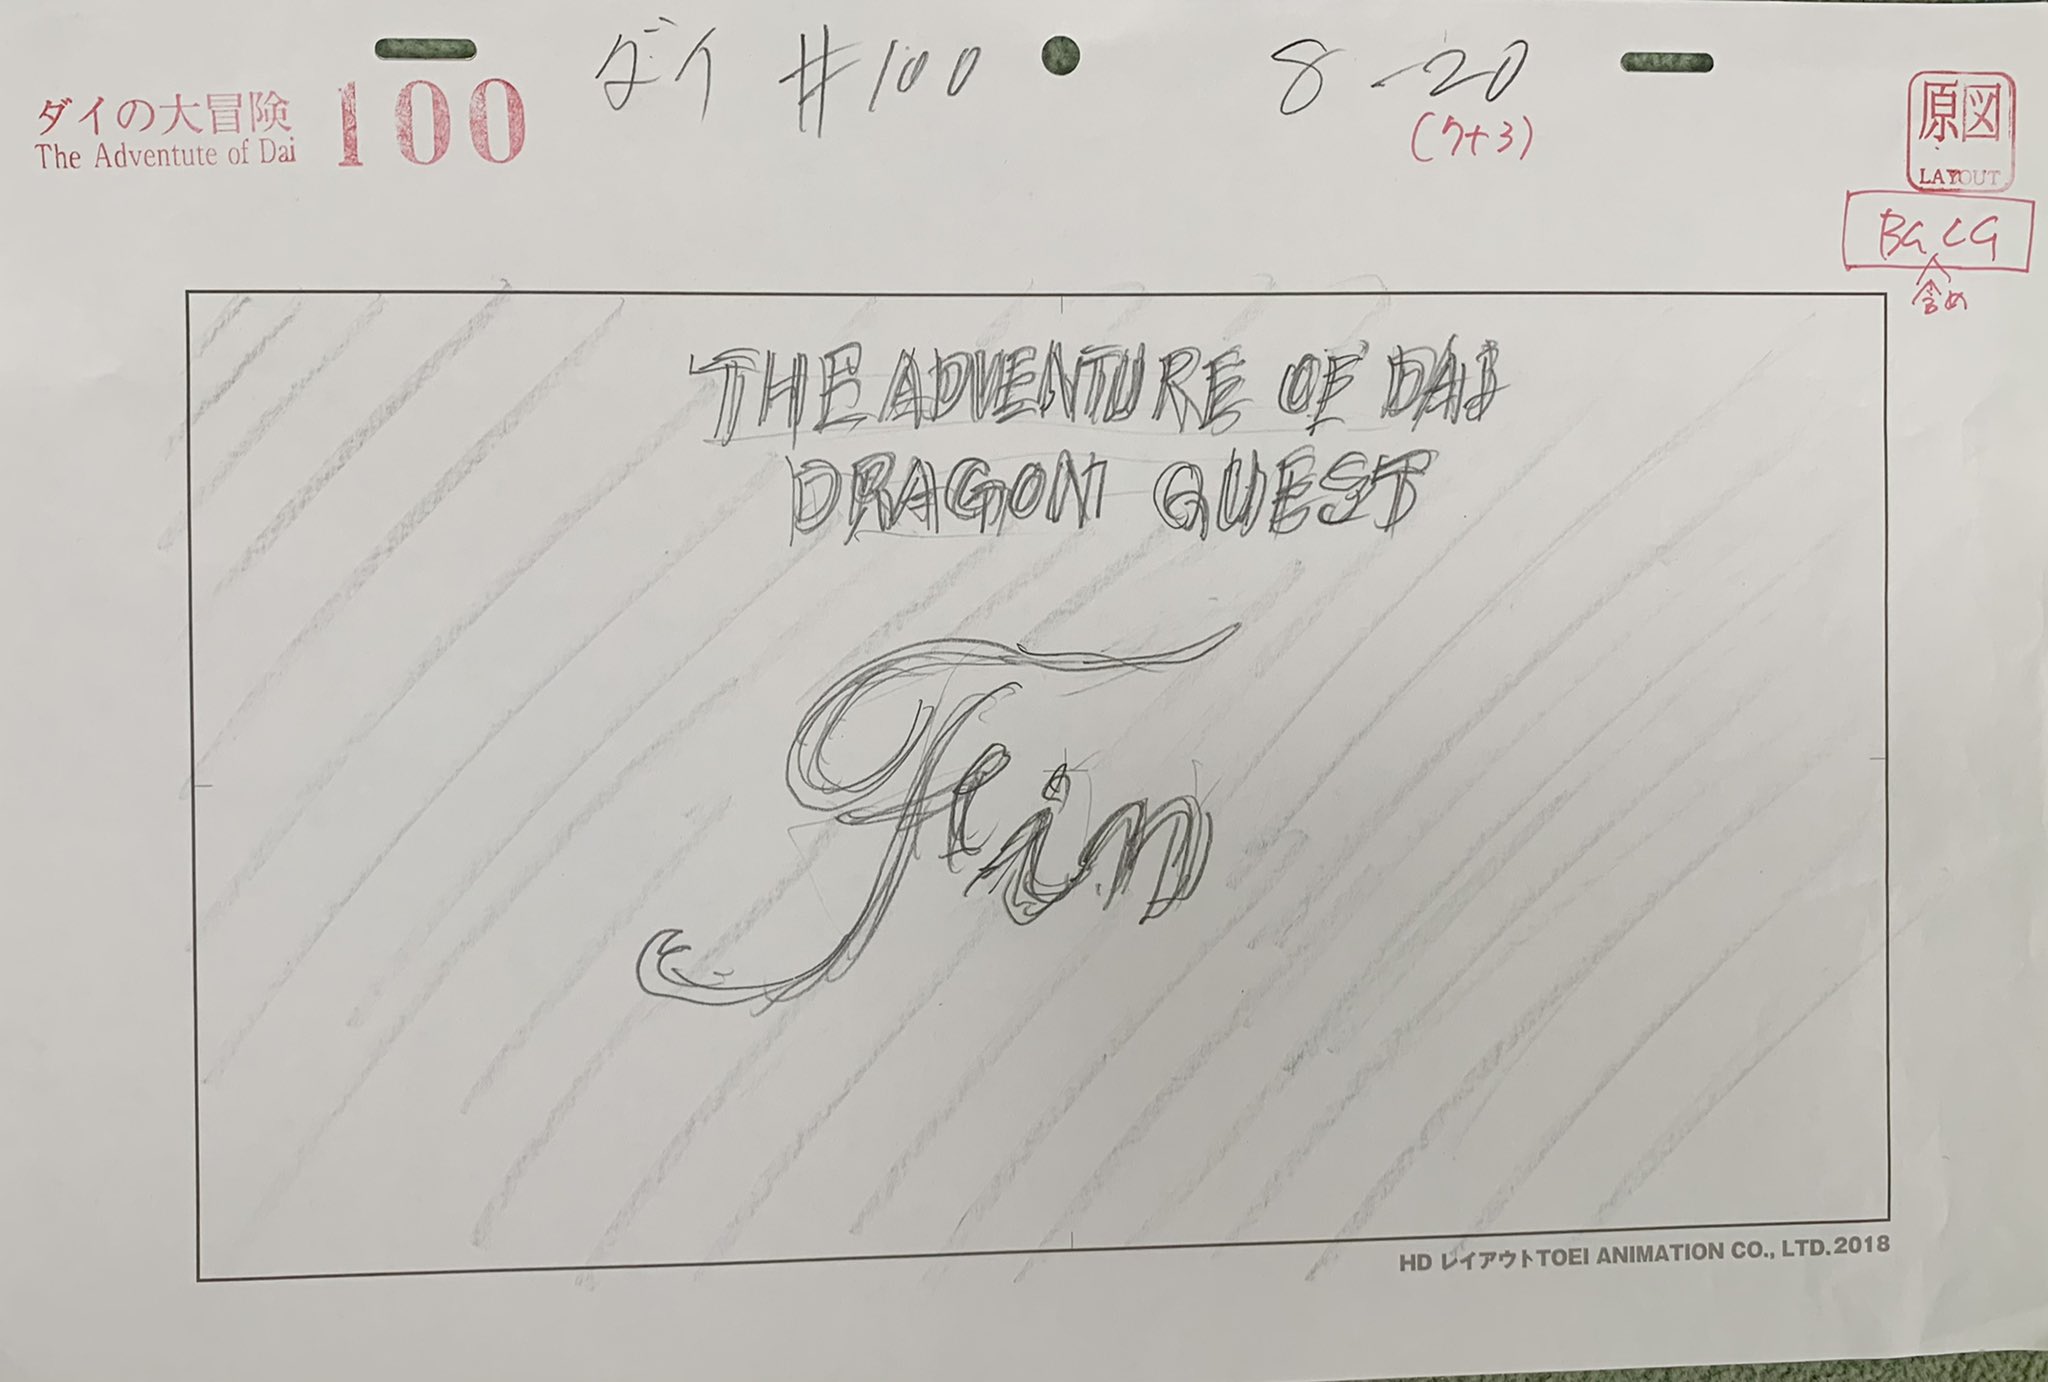 ダイ #100
8-20
(7+3)
ダイの大冒険
The Adventute of Dai
100
原図
LAYOUT
BG, CG
含め
THE ADVENTURE OF DAI
DRAGON QUEST
Fin
HD レイアウトTOEI ANIMATION CO., LTD.2018